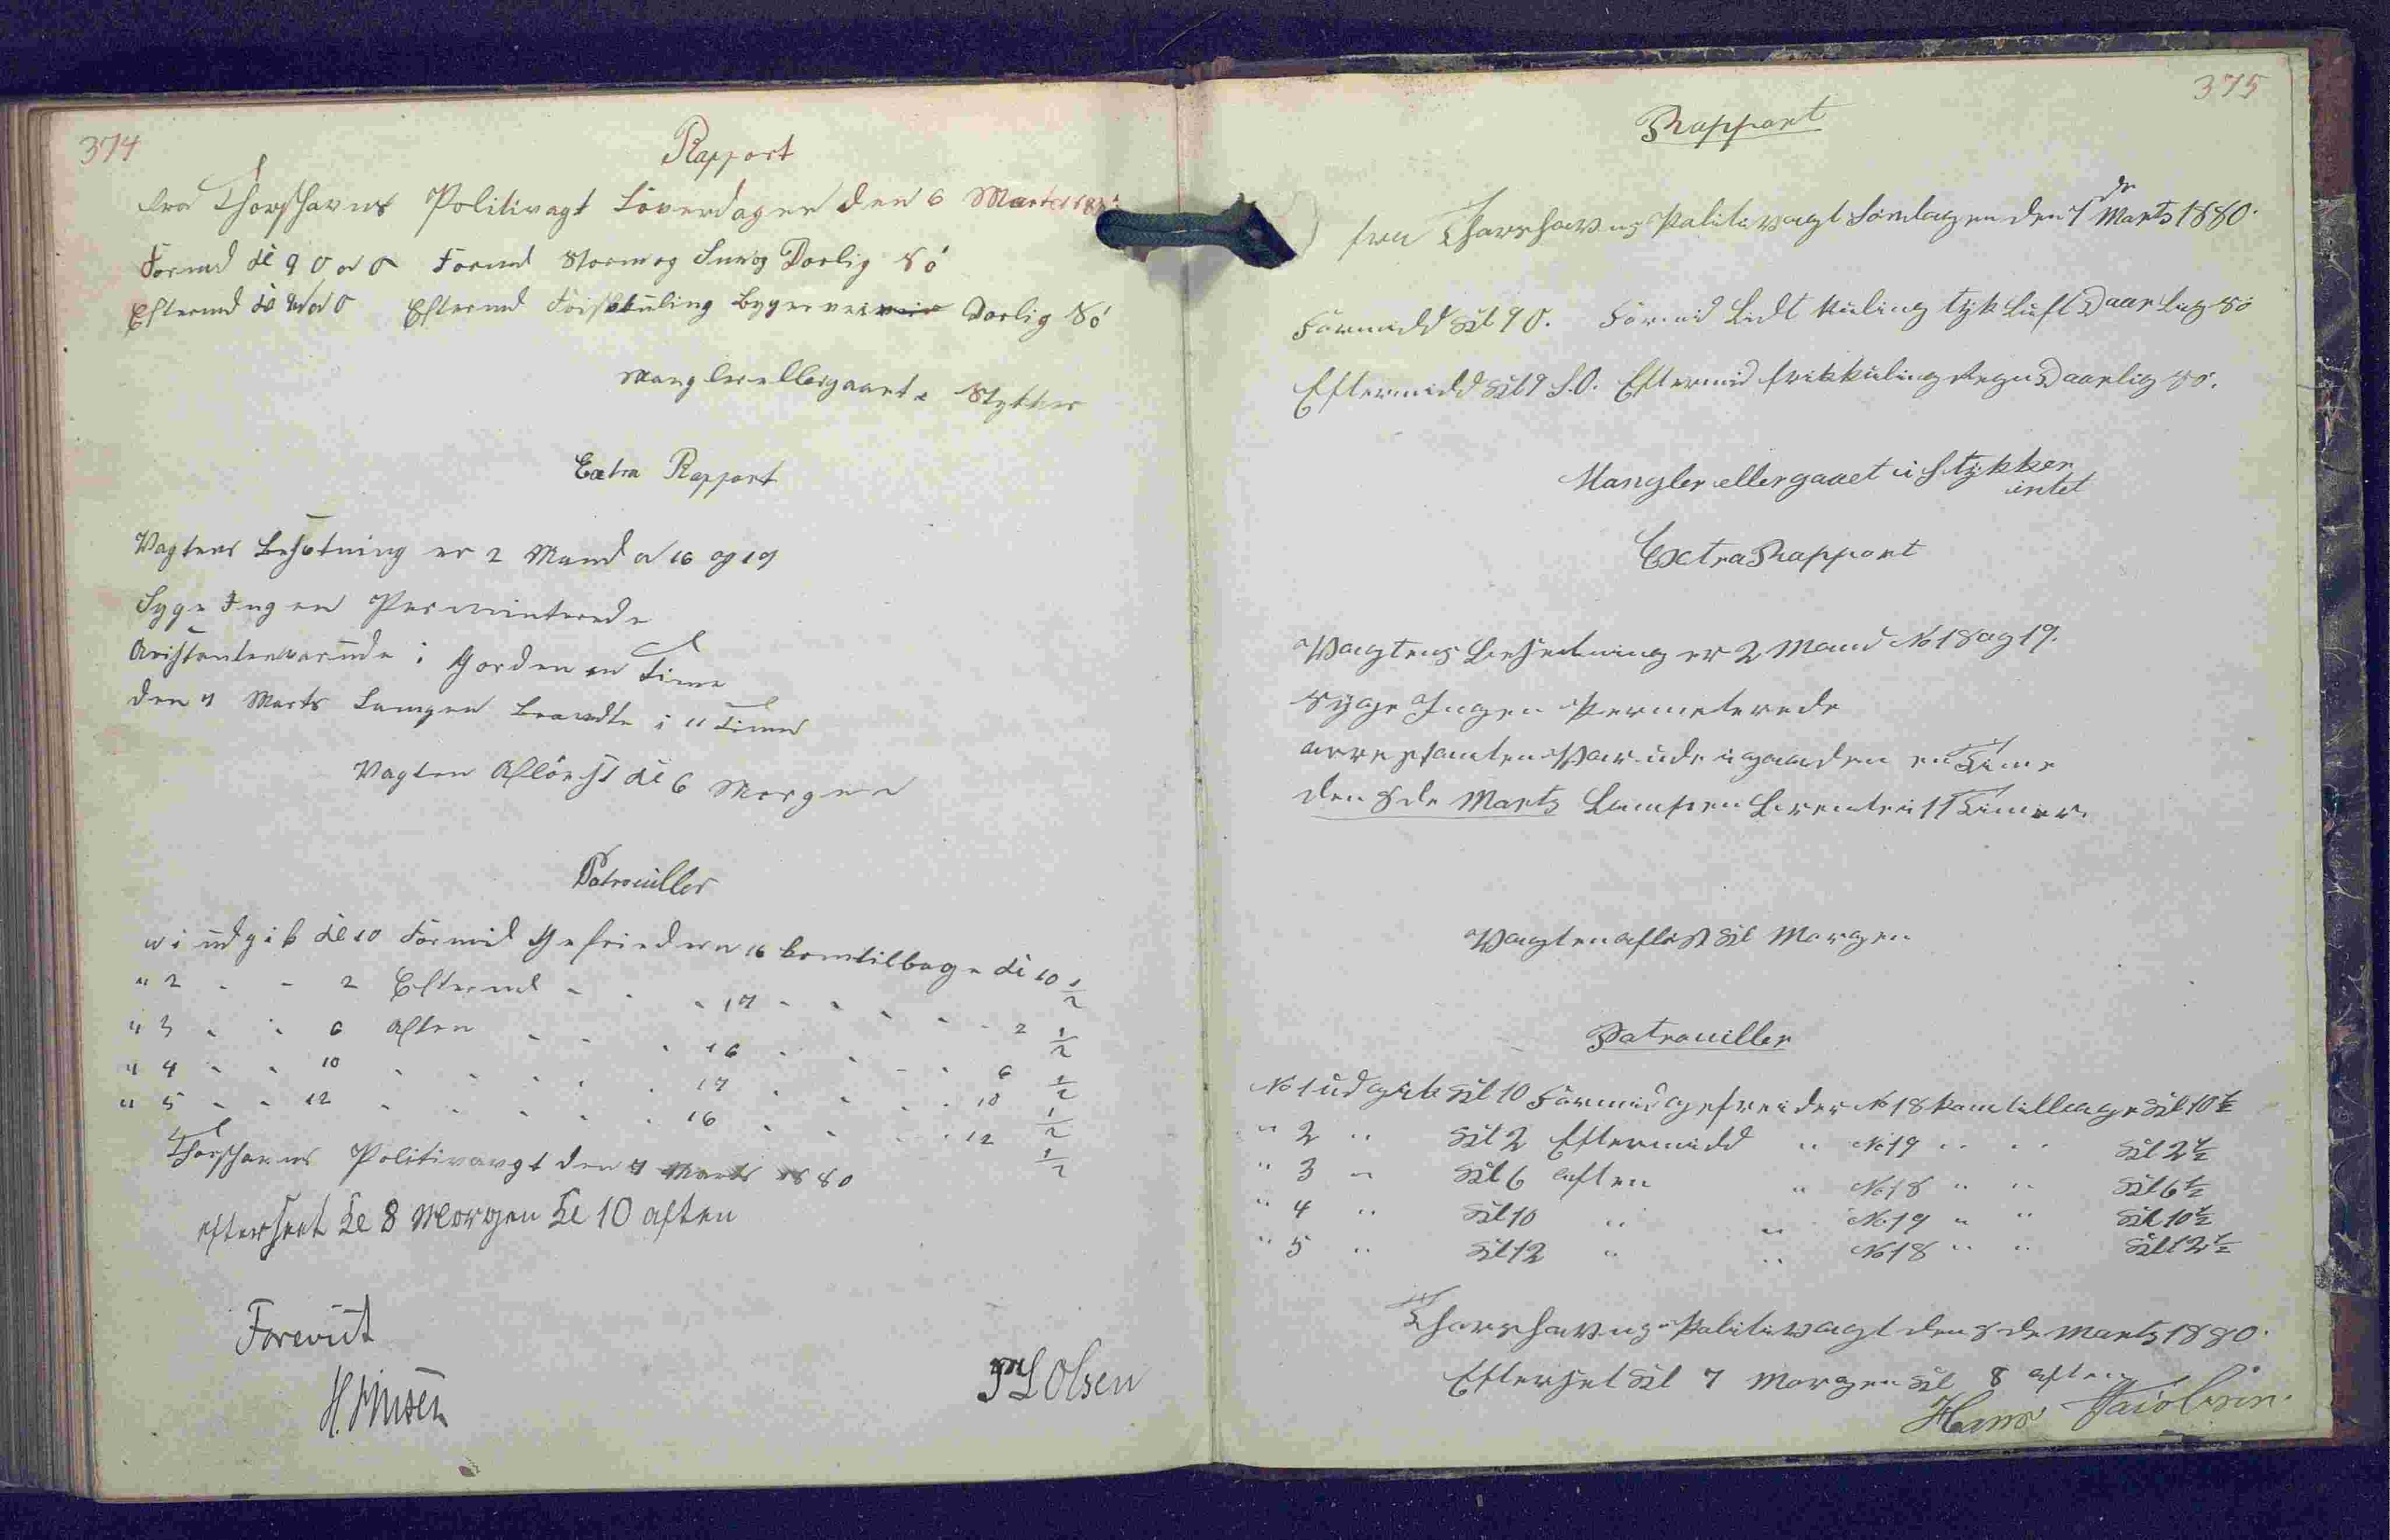 374
Rapport
fra Thorshavns Politivagt Löverdagen den 6 Marts
Formd Kl 9 O Formd Storm og Dorlig Sö
Eftermd Kl O Eftermd Friskkuling Byger Dorlig Sö
Mangler eller gaaet i Stykker
Extra Rapport
Vagtens Besetning er 2 Mand N 16 og 17
Syge Ingen Perminterede
Aristanten var ude i Gorden en Time
den 7 Marts Lampen Brændte i 11 Timer
Vagten Aflöest Kl 6 Morgen
Patrouiller
N 1 udgik Kl 10 Formid Gefrieder N 16 kom tilbage Kl 10 1/2
" 2 - - 2 Eftermd - - - 17 - - - - - 2 1/2
" 3 - - 6 Aften - - - 16 - - - - 6 1/2
" 4 - - 10 - - - - - 17 - - - - 10 1/2
" 5 - - 12 - - - - - 16 - - - - 12 1/2
Thorshavns Politivagt den 7 Marts 1880
efterseet Kl 8 Morgen Kl 10 aften
Forevist
P L Olsen
375
Rapport
fra Thorshavns Politivagt Söndagen den 7de Marts 1880.
Formidd Kl 9 O. Formid Lidt kuling tyk Luft Daarlig Sö
Eftermidd Kl 9 S.O. Eftermid friskkuling Regn Daarlig Sö.
Mangler eller gaaet i Stykker
intet
Extra Rapport
Vagtens Besetning er 2 Mand No 18 og 19.
Syge Ingen Permeterede
arrestanten Var ude i gaarden en Time
den 8de Marts Lampen Brente i 11 Timer.
Vagten aflöst Kl Morgen
Patrouiller
No 1 udgik Kl 10 Formid gefreider No 18 kom tilbage Kl 10 1/2
" 2 " Kl 2 Eftermidd " No 19 " " Kl 2 1/2
" 3 " Kl 6 aften " No 18 " " Kl 6 1/2
" 4 " Kl 10 " " No 19 " " Kl 10 1/2
" 5 " Kl 12 " " No 18 " " Kl 12 1/2
Thorshavns Politivagt den 8de Marts 1880.
Efterset Kl 7 Morgen Kl 8 aften
Hans Jacobsen.